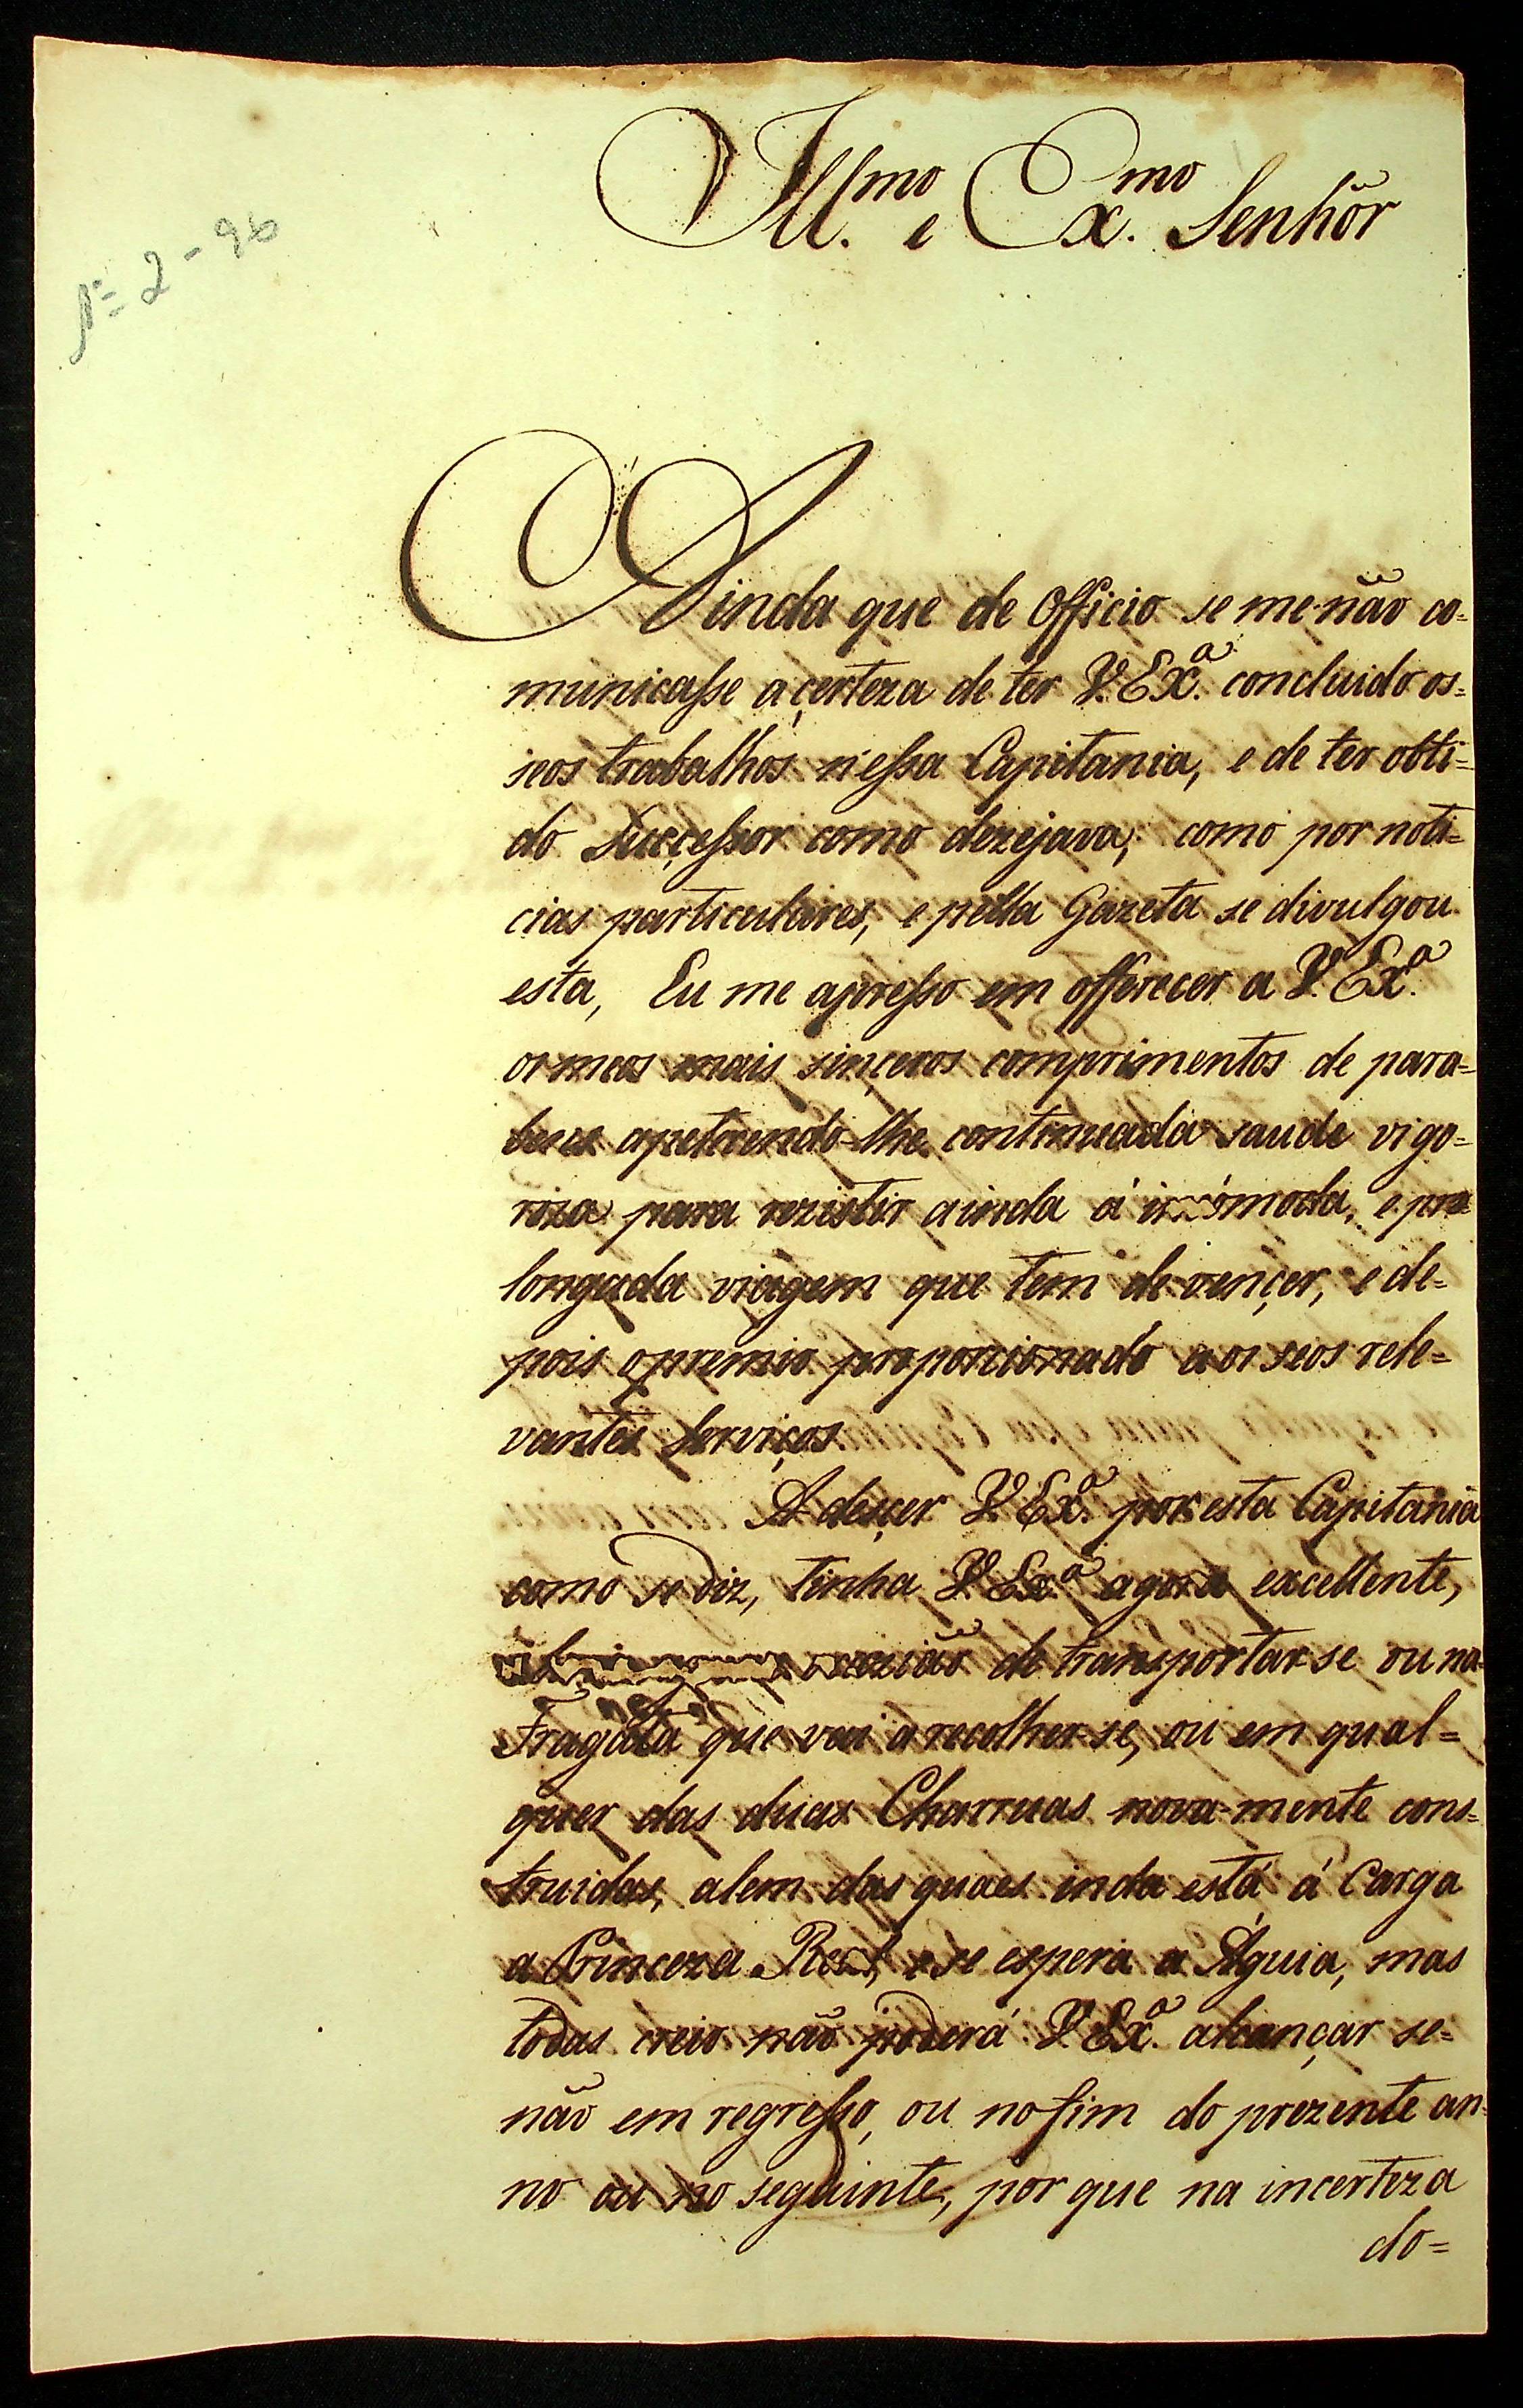 Ill.mo e Ex.mo Senhõr
Nº 2-96
Ainda que de Officio se me não co=
municasse a certeza de ter V. Ex.a concluido os=
seos trabalhos n'essa Capitania, e de ter obti=
do Successor como dezejava; como por noti=
cias particulares, e pella Gazeta se divulgou
esta, Eu me apresso em offerecer a V. Ex.a
os meos mais sinçeros comprimentos de para=
bens apetecendo-lhe continuada saude vigo=
roza para rezistir ainda á incómoda, e pro
longada viagem que tem de vençer, e de=
pois o premio proporcionado aos seos rele=
vantes Serviços.
A desçer V. Ex.a por esta Capitania
como se diz, tinha V. Ex.a agora excellente,
occazião de transportar-se ou na
Fragata que vai a recolher-se, ou em qual=
quer das duas Charruas nova-mente cons=
truidas, alem das quaes inda está á Carga
a Princeza Real, e se espera a Águia, mas
todas creio não poderá V. Ex.a alcançar se=
não em regresso, ou no fim do prezente an=
no ou no seguinte, por que na incerteza
do=